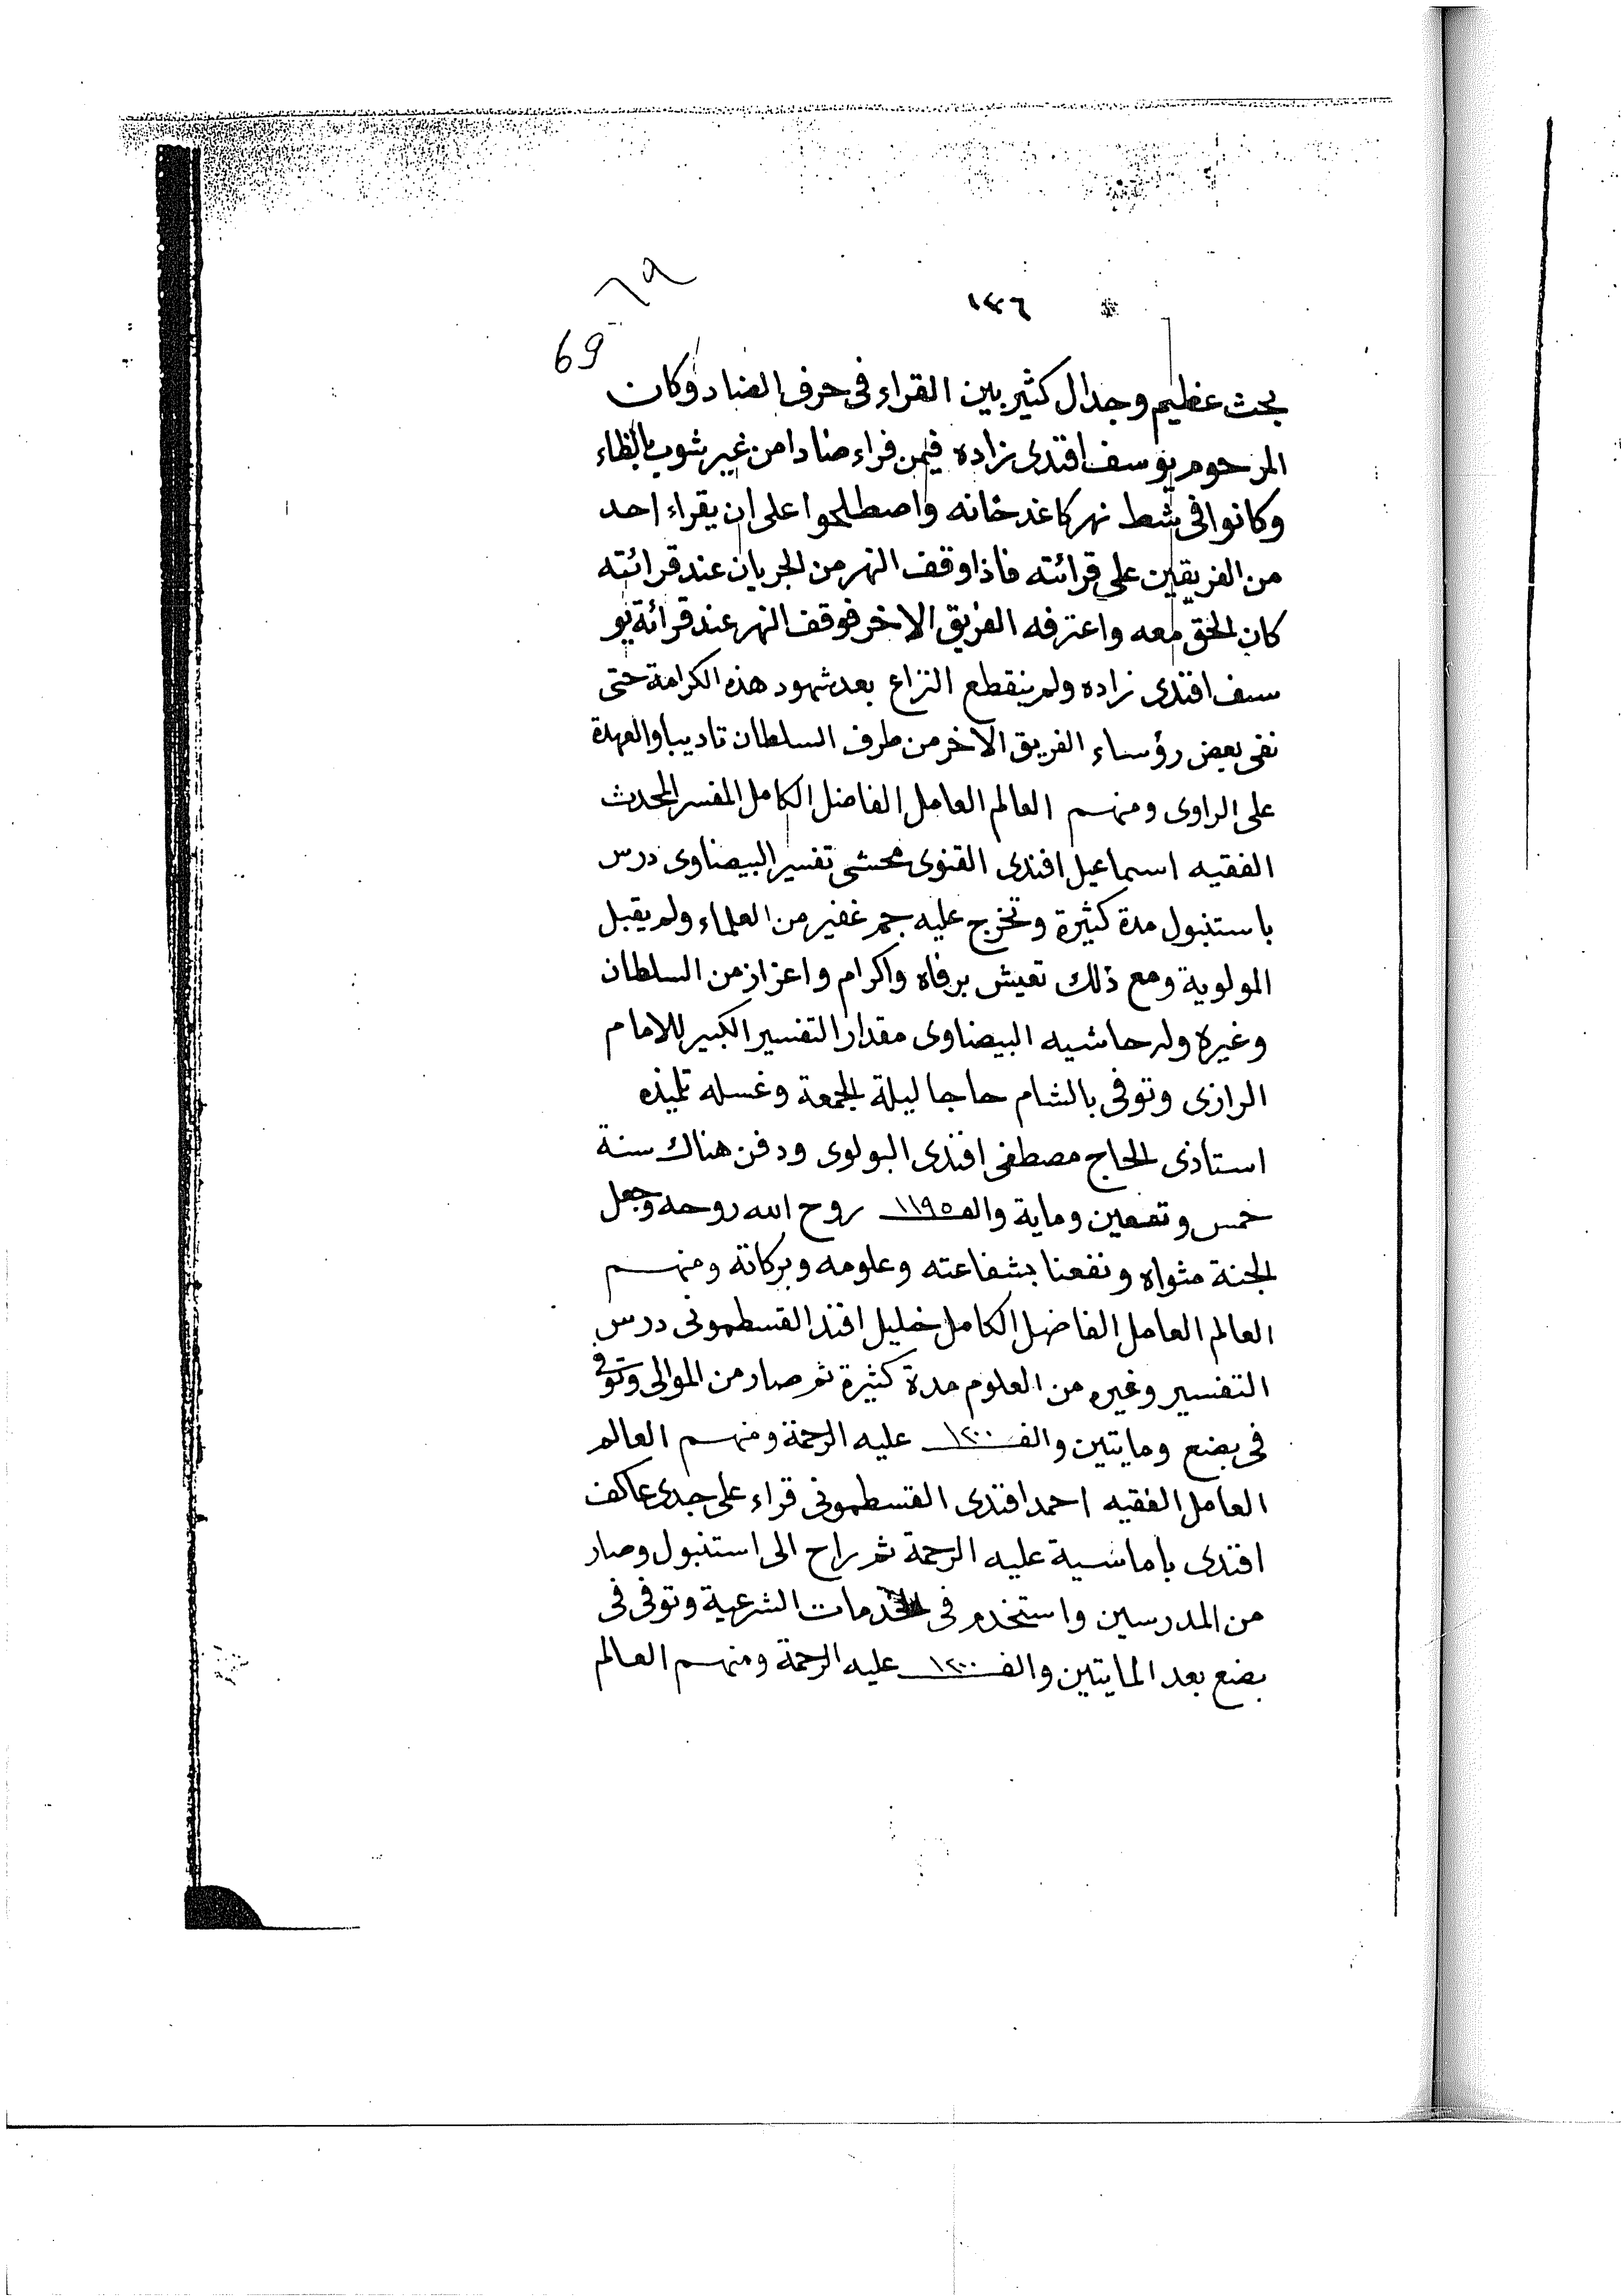 ٦٩
١٤٦
69
بحث عظيم وجدال كثير بين القراء فى حرف الضاد وكان
المرحوم يوسف افندى زاده فيمن قراء ضادا من غير شوب بالظاء
وكانوا فى شط نهر كاغد خانه واصطلحوا على ان يقراء احد
من الفريقين على قرائته فاذا وقف النهر من الجريان عند قرائته
كان الحق معه واعترفه الفريق الاخر فوقف النهر عند قرائة يو
سف افندى زاده ولم ينقطع النزاع بعد شهود هذه الكرامة حتى
نفى بعض رؤساء الفريق الاخر من طرف السلطان تاديبا والعهدة
على الراوى ومنهم العالم العامل الفاضل الكامل المفسر المحدث
الفقيه اسماعيل افندى القنوى محشى تفسير البيضاوى درس
باستنبول مدة كثيرة وتخرج عليه جم غفير من العلماء ولم يقبل
المولوية ومع ذلك تعيش برفاه واكرام واعزاز من السلطان
وغيره وله حاشيه البيضاوى مقدار التفسير الكبير للامام
الرازى وتوفى بالشام حاجا ليلة الجمعة وغسله تلميذه
استاذى الحاج مصطفى افندى البولوى ودفن هناك سنة
خمس وتسعين وماية والف ١١٩٥ روح الله روحه وجعل
الجنة مثواه ونفعنا بشفاعته وعلومه وبركاته ومنهم
العالم العامل الفاضل الكامل خليل افند القسطمونى درس
التفسير وغيره من العلوم مدة كثيرة ثم صار من الموالى وتوفى
فى بضع ومايتين والف ١٢٠٠ عليه الرحمة ومنهم العالم
العامل الفقيه احمد افندى القسطمونى قراء على جدى عاكف
افندى باماسية عليه الرحمة ثم راح الى استنبول وصار
من المدرسين واستخدم فى الخدمات الشرعية وتوفى فى
بضع بعد المايتين والف ١٢٠٠ عليه الرحمة ومنهم العالم